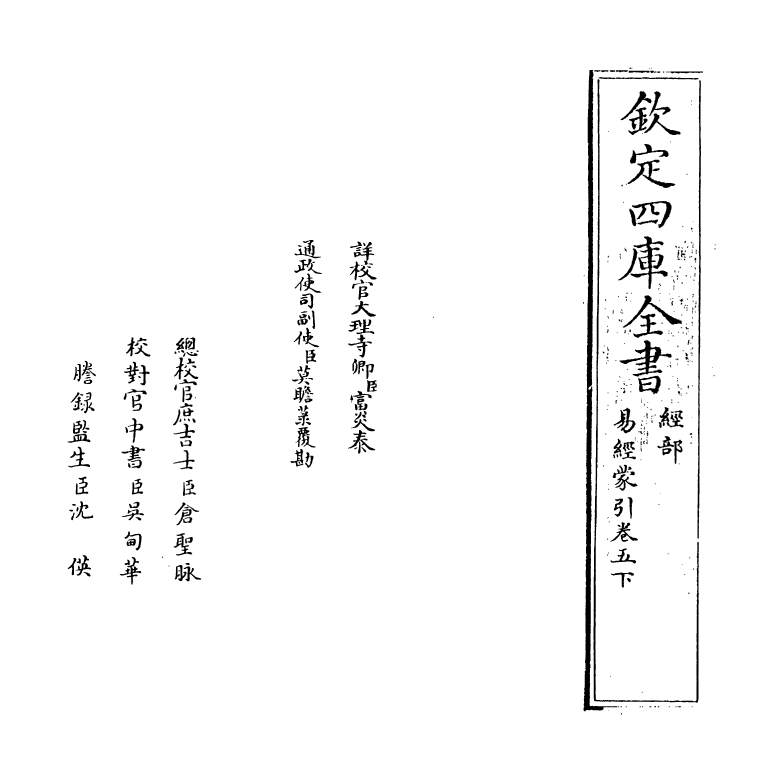 欽定四庫全書
經部
易經蒙引卷五下
詳校官大理寺卿臣富炎泰
通政使司副使臣莫瞻菉覆勘
總校官庶吉士臣倉聖脉
校對官中書臣吳甸華
謄録監生臣沈 偀